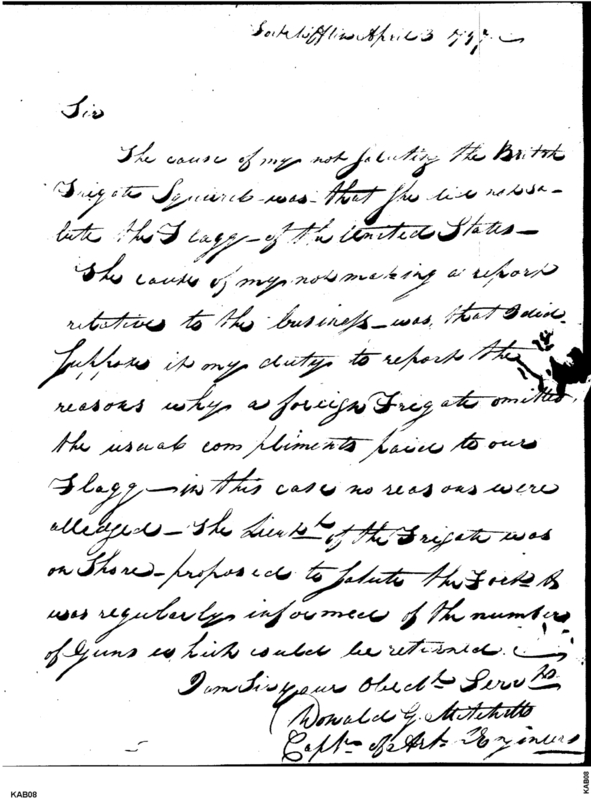 Fort Mifflin April 3 1797
Sir
The cause of my not Saluting the British
Frigate Squirel was that She did not sa-
lute the Flagg of the United States
The cause of my not making a report
relative to the business was, that I did
Suppose it my duty to report the
reasons why a foreign Frigate omitted
the usual compliments paid to our
Flagg in this case no reasons were
alledged The Lieut of the Frigate was
on Shore proposed to Salute the Fort &
was regularly informed of the number
of Guns which would be returned
I am Sir your Obedt Servt
Donald G. Mitchell
Captn of Art Engineers
KAB08
KAB08